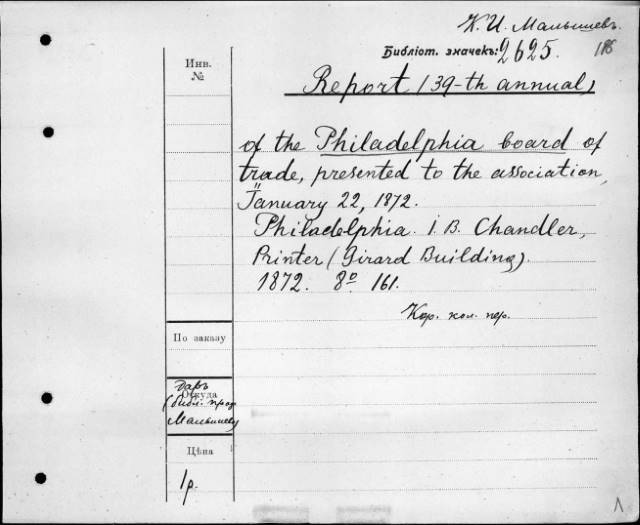 К. И. Малышевъ.
Библіот. значекъ: 2625.
Инв.
№
Report /39-th annual/
of the Philadelphia board of
trade, presented to the association,
January 22, 1872.
Philadelphia. I. B. Chandler,
Printer (Girard Building).
1872. 8º 161.
Кор. кол. пер.
По заказу
Даръ
Откуда
(библ. проф
Малышева)
Цѣна
1р.